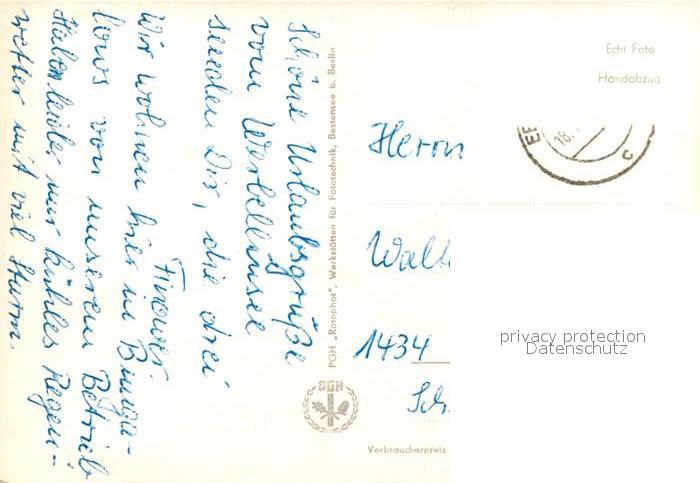 Schöne Urlaubsgrüße
vom Werbellinsee
senden Dir, die drei
Finower.
Wir wohnen hier in Bunga-
lows von unserem Betrieb
Haben leider nur kühles Regen-
wetter mit viel Sturm.
PGH „Rotophot", Werkstätten für Fototechnik, Bestensee b. Berlin
PGH
Echt Foto
Handabzug
18.
C
Herrn
Walt
1434
Sch
Verbraucherpreis
privacy protection
Datenschutz